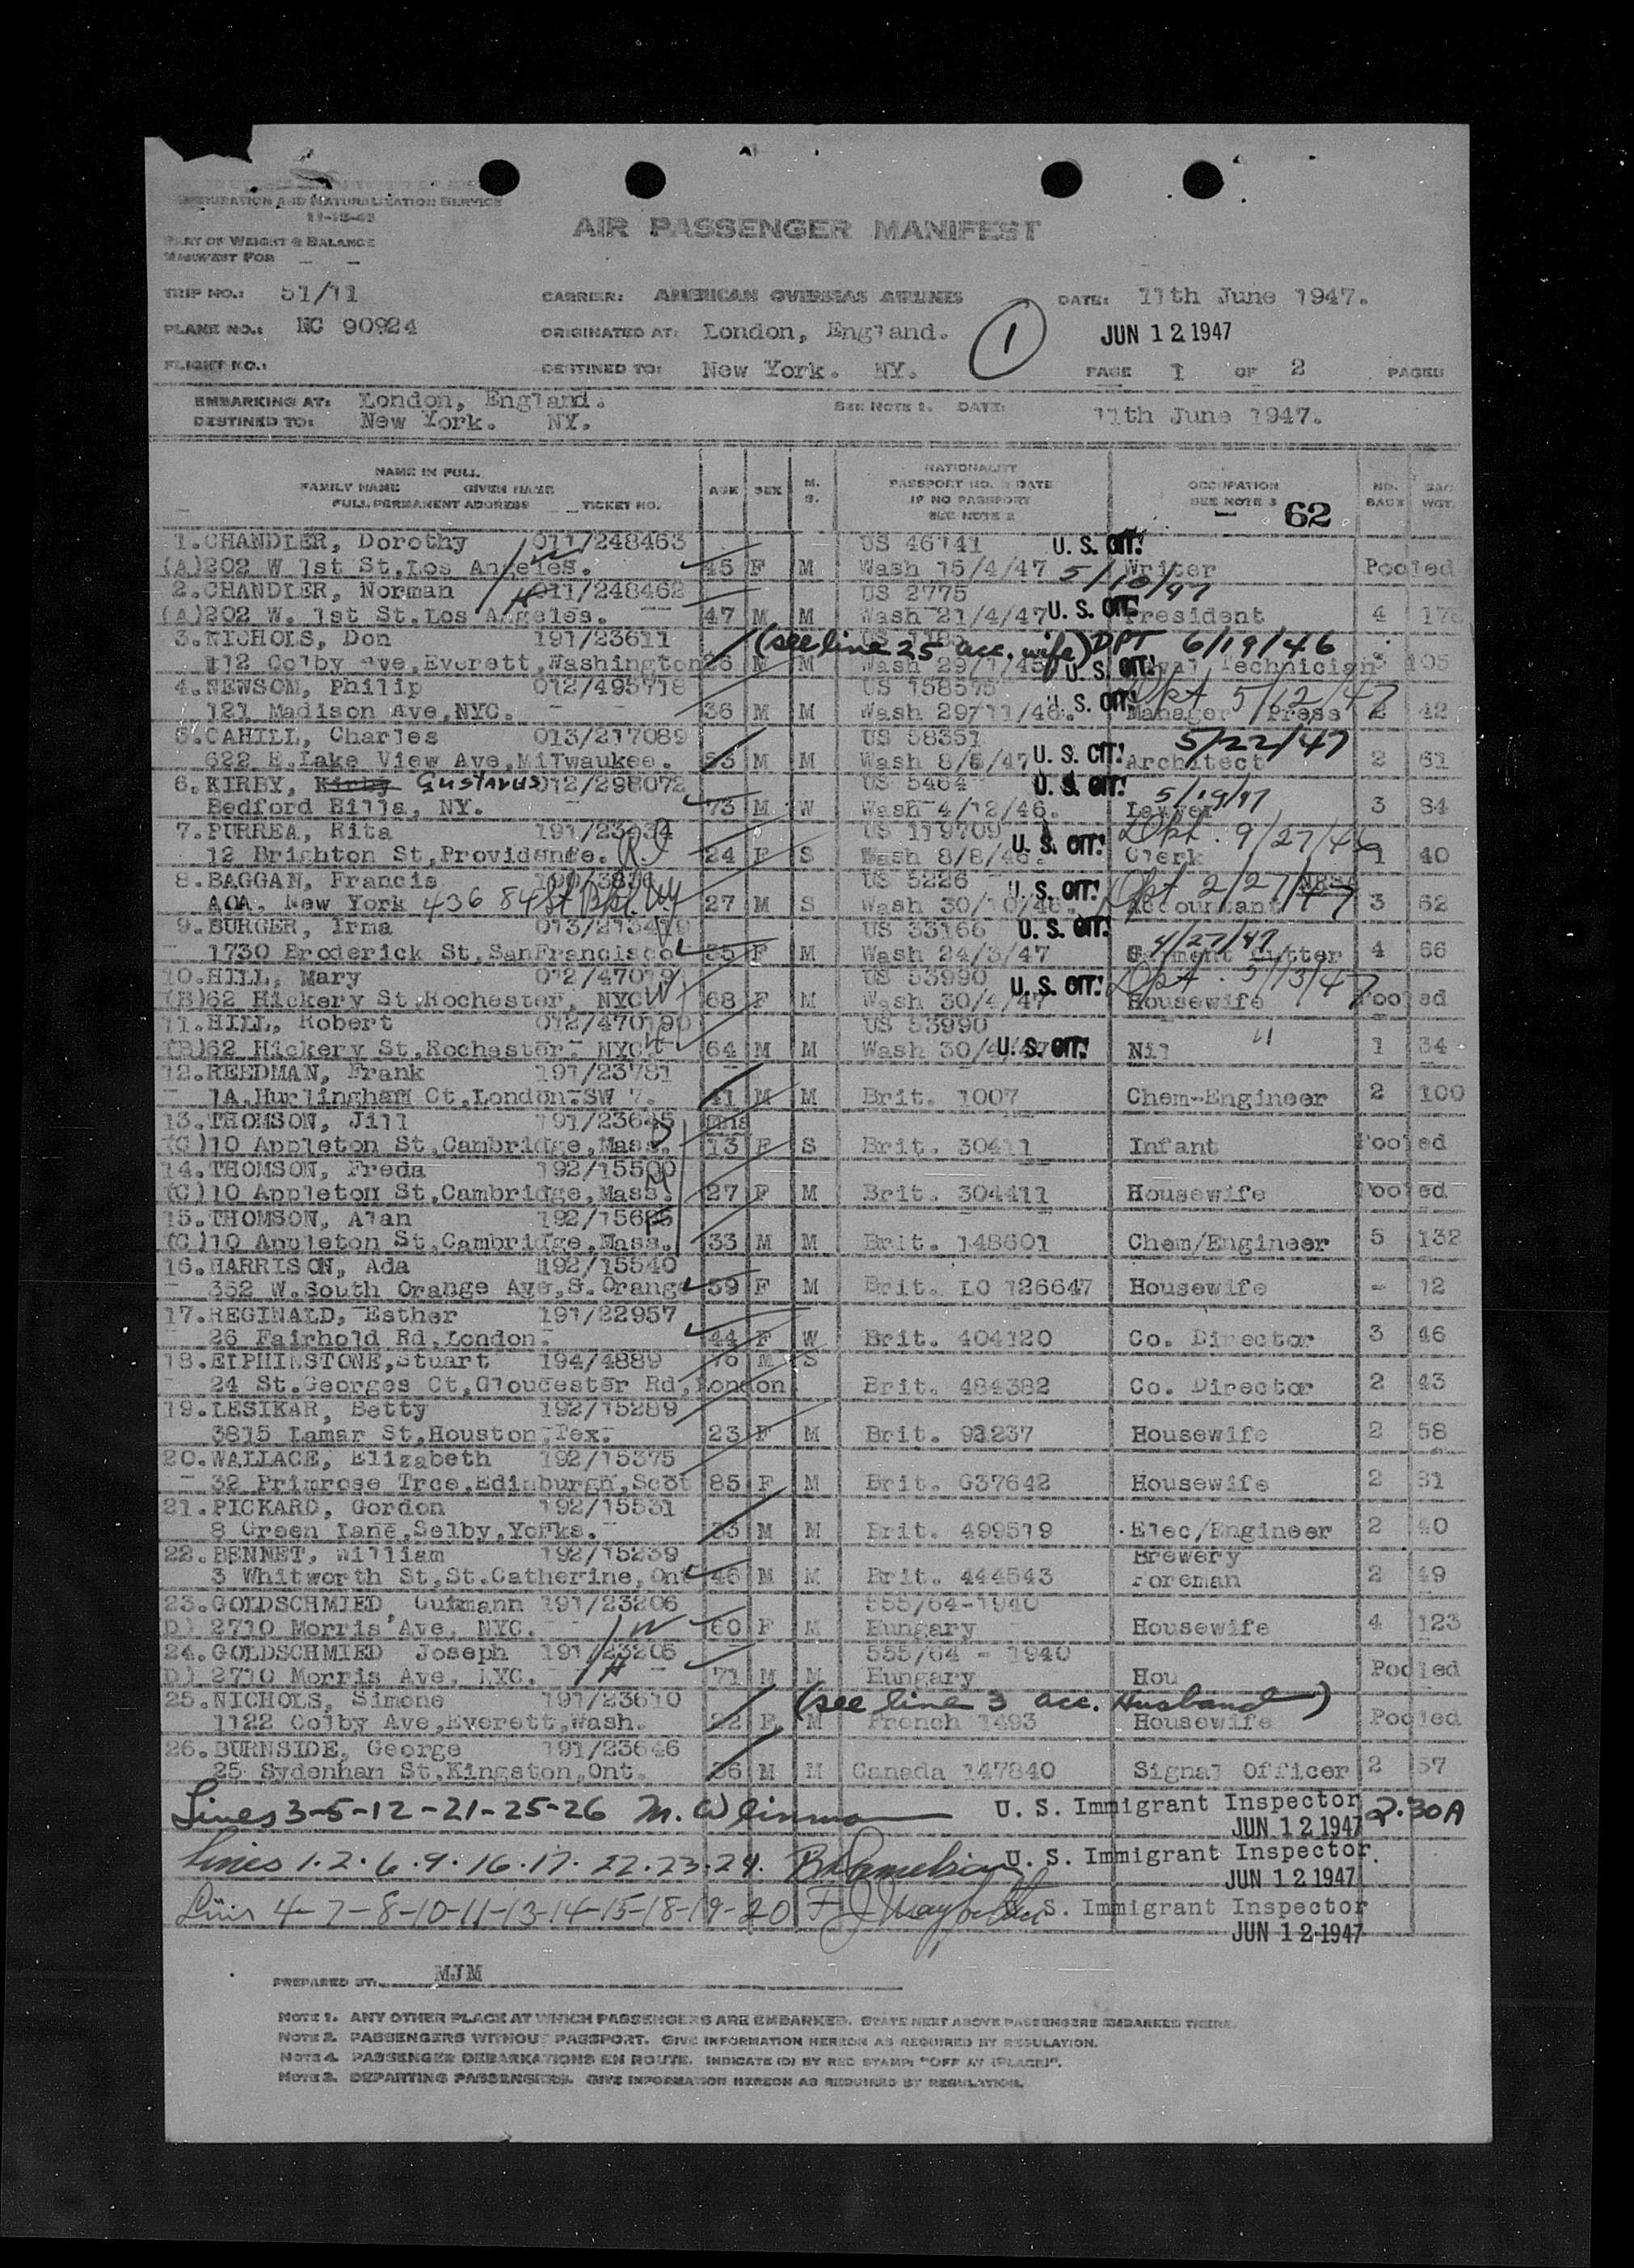 IMMIGRATION AND NATURALIZATION SERVICE
11-15-45
PART OF WEIGHT & BALANCE
MANIFEST FOR
AIR PASSENGER MANIFEST
TRIP NO.: 51/11 CARRIER: AMERICAN OVERSEAS AIRLINES DATE: 11th June 1947.
PLANE NO.: NC 90924 ORIGINATED AT: London, England. 1 JUN 12 1947
FLIGHT NO.: DESTINED TO: New York. NY. PAGE 1 OF 2 PAGES
EMBARKING AT: London, England. SEE NOTE 1. DATE: 11th June 1947.
DESTINED TO: New York. NY.
NAME IN FULL
FAMILY NAME GIVEN NAME
FULL PERMANENT ADDRESS TICKET NO.
AGE SEX M. S.
NATIONALITY
PASSPORT NO. & DATE
IF NO PASSPORT
SEE NOTE 2
OCCUPATION
SEE NOTE 3 62
NO. BAGS BAG WGT.
1.CHANDLER, Dorothy 011/248463 US 46141 U. S. CIT.
(A)202 W 1st St,Los Angeles. W 45 F M Wash 15/4/47 5/10/47 Writer Pooled
2.CHANDLER, Norman 011/248462 US 2775
(A)202 W. 1st St.Los Angeles. H 47 M M Wash 21/4/47 U. S. CIT. President 4
3.NICHOLS, Don 191/23611 (see line 25 acc. wife) DPT 6/19/46
112 Colby Ave,Everett,Washington 26 M M Wash 29/1/45 U. S. CIT. Technician 3 105
4.NEWSOM, Philip 012/495718 US 158575 U. S. CIT. Dpt 5/12/47
121 Madison Ave,NYC. 36 M M Wash 29/11/46. Manager Press 2 42
5.CAHILL, Charles 013/217089 US 58351 5/22/47
622 E.Lake View Ave,Milwaukee. 53 M M Wash 8/5/47 U. S. CIT. Architect 2 61
6.KIRBY, Kirby Gustavus 012/298072 US 5464 U. S. CIT. 5/19/47
Bedford Hills, NY. 73 M W Wash 4/12/46. Lawyer 3 84
7.PURREA, Rita 191/23034 US 119709 U. S. CIT. Dpt. 9/27/46
12 Brighton St,Providence. R.I 24 F S Wash 8/8/46. Clerk 1 40
8.BAGGAN, Francis US 5226 U. S. CIT. Dpt 2/27/47
AOA. New York 436 84 St Bkl. NY 27 M S Wash 30/10/46. Accountant 3 62
9.BURGER, Irma 013/213419 US 33166 U. S. CIT. 4/27/47
1730 Broderick St,SanFrancisco 35 F M Wash 24/3/47 Garment Cutter 4 66
10.HILL, Mary 012/47019 US 53990 U. S. CIT. Dpt. 5/13/47
(B)62 Hickery St,Rochester, NYC W 68 F M Wash 30/4/47 Housewife Pooled
11.HILL, Robert 012/470190 US 53990 "
(B)62 Hickery St,Rochester. NYC. H 64 M M Wash 30/4/47 U. S. CIT. Nil 1 34
12.REEDMAN, Frank 191/23781
1A.Hurlingham Ct,London.SW 7. 41 M M Brit. 1007 Chem-Engineer 2 100
13.THOMSON, Jill 191/23645 mns
(C)10 Appleton St,Cambridge,Mass. D 13 F S Brit. 30411 Infant Pooled
14.THOMSON, Freda 192/15500
(C)10 Appleton St,Cambridge,Mass. M 27 F M Brit. 304411 Housewife Pooled
15.THOMSON, Alan 192/15685
(C)10 Appleton St,Cambridge,Mass. F 33 M M Brit. 148601 Chem/Engineer 5 132
16.HARRISON, Ada 192/15540
352 W.South Orange Ave,S.Orange 59 F M Brit. LO 126647 Housewife - 12
17.REGINALD, Esther 191/22957
26 Fairhold Rd,London. 44 F W Brit. 404120 Co. Director 3 46
18.ELPHINSTONE,Stuart 194/4889 76 M S
24 St.Georges Ct,Gloucester Rd,London Brit. 484382 Co. Director 2 43
19.LESIKAR, Betty 192/15289
3815 Lamar St,Houston,Tex. 23 F M Brit. 93237 Housewife 2 58
20.WALLACE, Elizabeth 192/15375
32 Primrose Trce,Edinburgh,Scot 85 F M Brit. G37642 Housewife 2 31
21.PICKARD, Gordon 192/15531
8 Green Lane,Selby,Yorks. 33 M M Brit. 499519 Elec/Engineer 2 40
22.BENNET, William 192/15239 Brewery
3 Whitworth St,St.Catherine,Ont 46 M M Brit. 444543 Foreman 2 49
23.GOLDSCHMIED, Gutmann 191/23206 555/64-1940
D) 2710 Morris Ave, NYC. W 60 F M Hungary Housewife 4 123
24.GOLDSCHMIED Joseph 191/23205 555/64 - 1940
D) 2710 Morris Ave, NYC. H 71 M M Hungary Hou Pooled
25.NICHOLS, Simone 191/23610 (see line 3 acc. Husband)
1122 Colby Ave,Everett,Wash. 22 F M French 1493 Housewife Pooled
26.BURNSIDE, George 191/23646
25 Sydenham St,Kingston,Ont. 36 M M Canada 147840 Signal Officer 2 57
Lines 3-5-12-21-25-26 U. S. Immigrant Inspector 2.30A
JUN 12 1947
Lines 1.2.6.9.16.17.22.23.24. U. S. Immigrant Inspector.
JUN 12 1947
Lines 4-7-8-10-11-13-14-15-18-19-20 U. S. Immigrant Inspector
JUN 12 1947
PREPARED BY: MJM
NOTE 1. ANY OTHER PLACE AT WHICH PASSENGERS ARE EMBARKED. STATE NEXT ABOVE PASSENGERS EMBARKED THERE.
NOTE 2. PASSENGERS WITHOUT PASSPORT. GIVE INFORMATION HEREON AS REQUIRED BY REGULATION.
NOTE 4. PASSENGER DEBARKATIONS EN ROUTE. INDICATE (D) BY REC STAMP: "OFF AT (PLACE)".
NOTE 3. DEPARTING PASSENGERS. GIVE INFORMATION HEREON AS REQUIRED BY REGULATION.